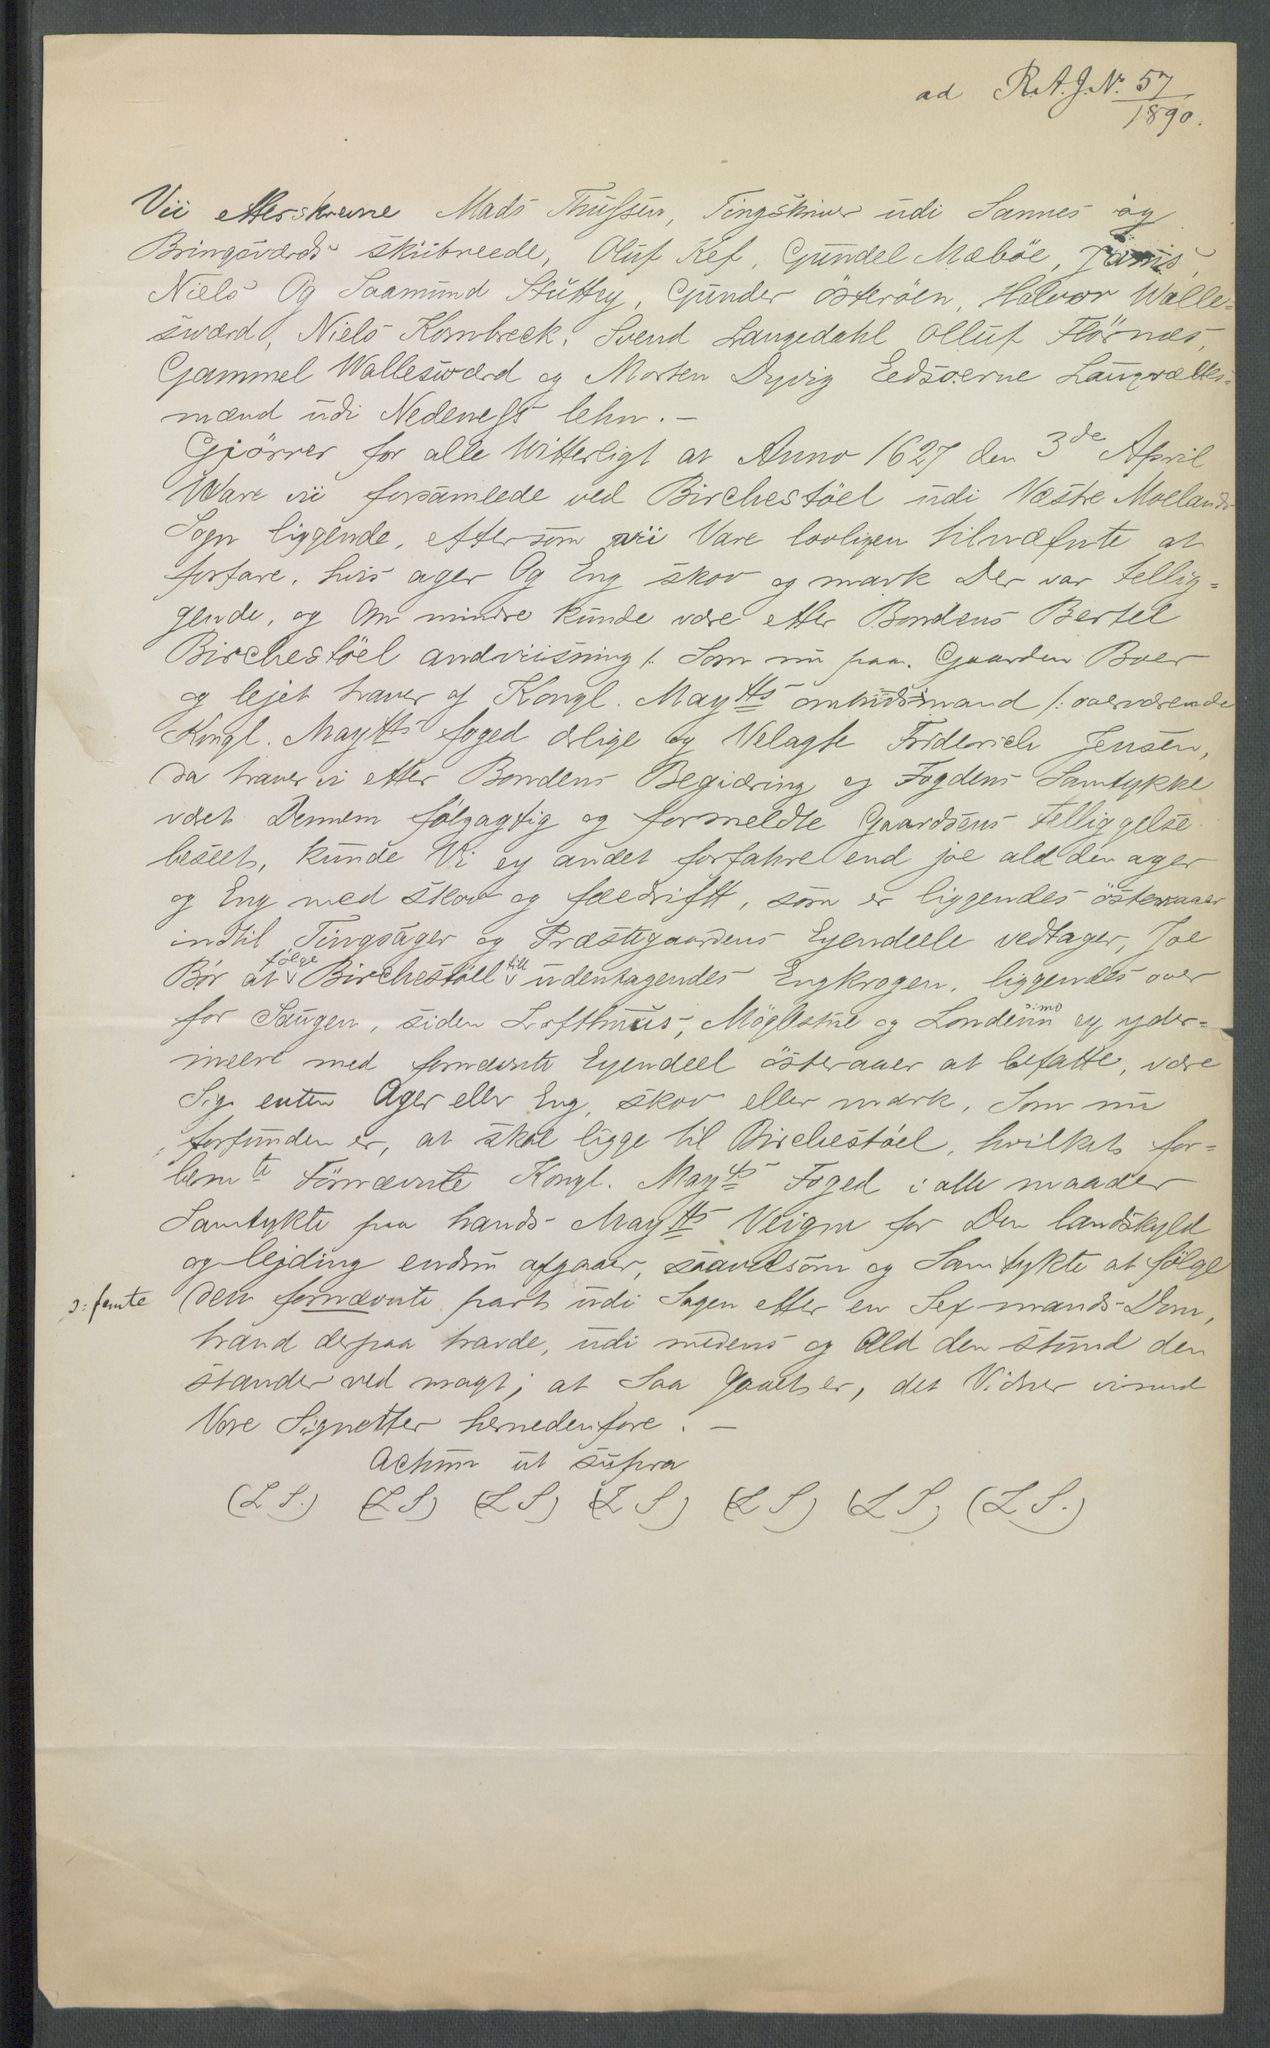 ad R.A.J.N. 57
1890.
Vii efterskrevne Mads Thuſsen, Tingskriver udi Sannes og
Bringsværds skiibreede, Oluf Kef, Gundel Mæbøe,
Niels Og Saamund Stuttzy, Gunder österöen, Halvor Walle-
sward, Niels Kornbreck, Svend Langedahl olluf Flörnæs,
Gammel Walleswærd og Morten Dyvig Eedsoerne Laugrættes-
mænd udi Nedeneſs lehn. —
Giörrer for alle Witterligt at Anno 1627 den 3de April
Ware vii forsamlede ved Birchestöel udi Væstre Moelands
Sogn liggende, eftersom vii Vare lovligen tilnæfnte at
forfare, hvis ager Og Eng skov og mark Der var tellig-
gende, og Om mindre kunde være efter Bondens Bertel
Birchestöel andviisning /: Som nu paa Gaarden Boer
og lejet haver af Kongl. Maytts ombudsmand /: overværende
Kongl. Maytts foged ærlige og Velagte Friderich Jensen,
da haver vi efter Bondens Begiæring og Fogdens Samtykke
været Dennem fölgagtig og formeldte Gaardsens telliggelse
beseet, kunde Vi ey andet forfahre end joe ald den ager
og Eng med skov og fædrift, som er liggendes österaaer
indtil Tingsager og Præstegaardens Eyendeele vedtager, Joe
Bör at fölge Birchestöell till udentagendes Engkrogen, liggendes over
for Saugen, siden Lofthuus, Möglestue og Londeviim ey yder-
meere med fornævnte Eyendeel österaaer at befatte, være
Sig enten Ager eller Eng, skov eller mark, Som nu
forfunden er, at skal ligge til Birchestöel, hvilket for-
bemte Förnævnte Kongl. Maytts Foged i alle maader
Samtykte paa hands Maytts Veigne for Den landskyld
og lejding endnu afgaaer, saavelsom og Samtykte at fölge
ɔ: femte den fornævnte part udi Sagen efter en Sex mands-Dom,
hand derpaa havde, udi medens og Ald den stund den
stander ved magt; at Saa Gaaet er, det Vidner vi med
Vore Signetter hernedenfore. —
Actum ut supra
(L S.) (L S) (L S) (L S) (L S) (L S) (L S.)